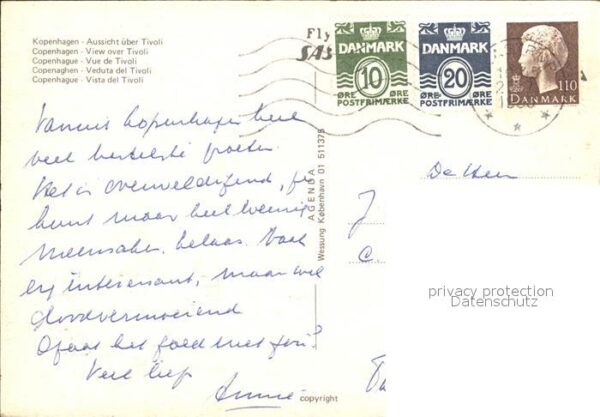 Kopenhagen - Aussicht über Tivoli
Copenhagen - View over Tivoli
Copenhague - Vue de Tivoli
Copenaghen - Veduta del Tivoli
Copenhague - Vista del Tivoli
Fly
SAS
DANMARK
10
ØRE ØRE
POSTFRIMÆRKE
DANMARK
20
ØRE ØRE
POSTFRIMÆRKE
110
DANMARK
Vanuit Kopenhagen heel
veel hartelijke groeten
Het is overweldigend, je
kunt maar heel weinig
meenemen, helaas. Vast
erg interessant, maar wel
doodvermoeiend
Of het goed met jou?
Veel liefs
Annie
AGENDA
Wessung København 01 511375
De Heer
J
C.
privacy protection
Datenschutz
copyright